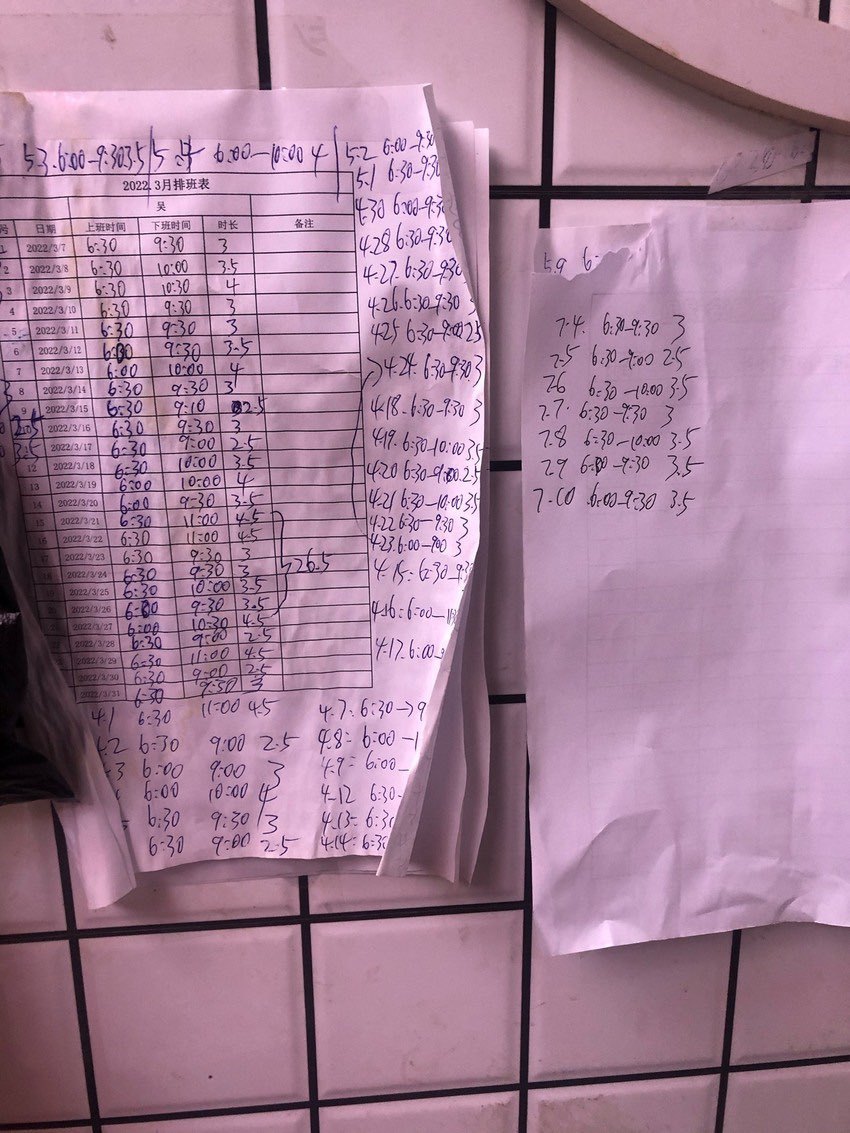 5.3. 6:00-9:30 3.5 5.4 6:00-10:00 4
2022.3月排班表
吴
号 日期 上班时间 下班时间 时长 备注
1 2022/3/7 6:30 9:30 3
2 2022/3/8 6:30 10:00 3.5
3 2022/3/9 6:30 10:30 4
4 2022/3/10 6:30 9:30 3
5 2022/3/11 6:30 9:30 3
6 2022/3/12 6:00 9:30 3.5
7 2022/3/13 6:00 10:00 4
8 2022/3/14 6:30 9:30 3
9 2022/3/15 6:30 9:10 2.5
2022/3/16 6:30 9:30 3
2.5 2022/3/17 6:30 9:00 2.5
3.5 12 2022/3/18 6:30 10:00 3.5
13 2022/3/19 6:00 10:00 4
14 2022/3/20 6:00 9:30 3.5
15 2022/3/21 6:30 11:00 4.5
16 2022/3/22 6:30 11:00 4.5
17 2022/3/23 6:30 9:30 3
18 2022/3/24 6:30 9:30 3
2022/3/25 6:30 10:00 3.5
2022/3/26 6:00 9:30 3.5
2022/3/27 6:00 10:30 4.5
2022/3/28 6:30 9:00 2.5
2022/3/29 6:30 11:00 4.5
2022/3/30 6:30 9:00 2.5
2022/3/31 6:30 9:30 3
26.5
4.1 6:30 11:00 4.5
4.2 6:30 9:00 2.5
3 6:00 9:00 3
6:00 10:00 4
6:30 9:30 3
6:30 9:00 2.5
4.7: 6:30→9
4.8: 6:00-1
4.9: 6:00-
4.12 6:30-
4.13: 6:30
4.14: 6:30
5.2 6:00-9:30
5.1 6:30-9:30
4.30 6:00-9:30
4.28 6:30-9:30
4.27. 6:30-9:30
4.26. 6:30-9:30 3
4.25 6:30-9:00 2.5
4.24. 6:30-9:30 3
4.18. 6:30-9:30 3
4.19. 6:30-10:00 3.5
4.20 6:30-9:00. 2.5
4.21 6:30-10:00 3.5
4.22 6:30-9:30 3
4.23. 6:00-9:00 3
4.15: 6:30-9:30
4.16: 6:00-
4.17. 6:00-9
5.9 6
7.4. 6:30-9:30 3
7.5 6:30-9:00 2.5
7.6 6:30-10:00 3.5
7.7. 6:30-9:30 3
7.8 6:30-10:00 3.5
7.9 6:00-9:30 3.5
7.10 6:00-9:30 3.5